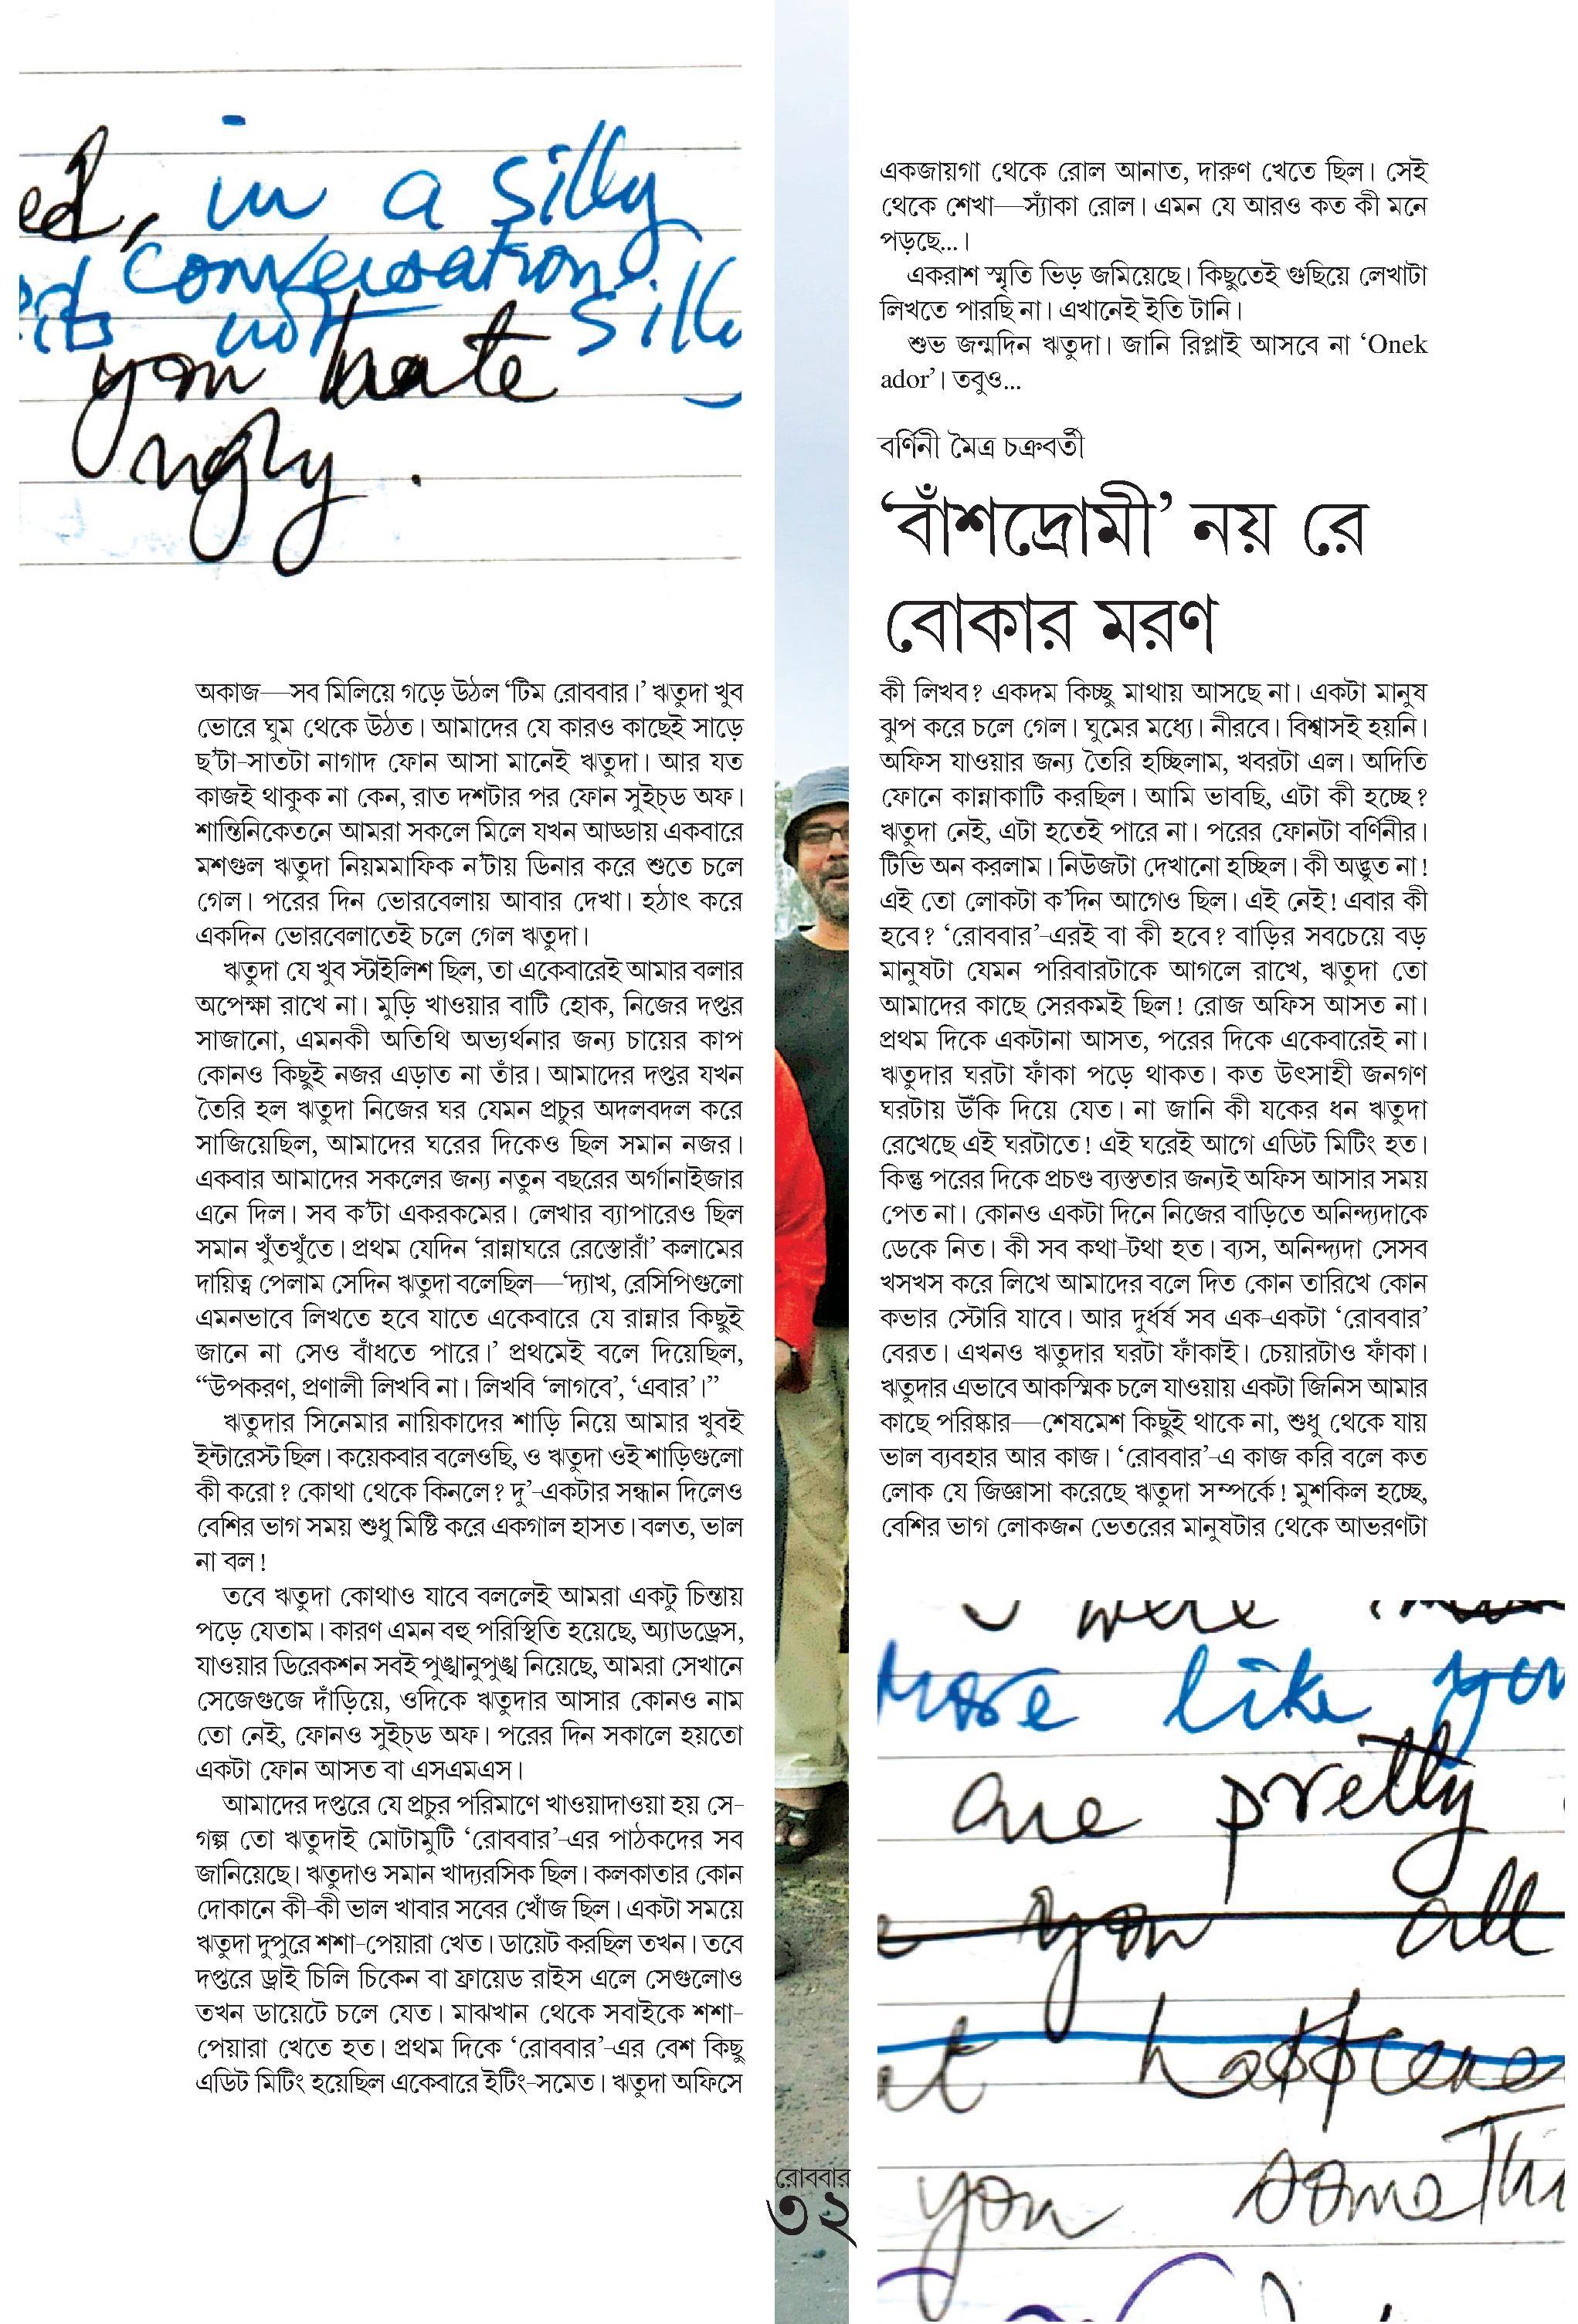 ed, in a silly
conversation.
its not silly
you hate
ugly.
অকাজ—সব মিলিয়ে গড়ে উঠল ‘টিম রোববার।’ ঋতুদা খুব
ভোরে ঘুম থেকে উঠত। আমাদের যে কারও কাছেই সাড়ে
ছ’টা-সাতটা নাগাদ ফোন আসা মানেই ঋতুদা। আর যত
কাজই থাকুক না কেন, রাত দশটার পর ফোন সুইচ্‌ড অফ।
শান্তিনিকেতনে আমরা সকলে মিলে যখন আড্ডায় একবারে
মশগুল ঋতুদা নিয়মমাফিক ন’টায় ডিনার করে শুতে চলে
গেল। পরের দিন ভোরবেলায় আবার দেখা। হঠাৎ করে
একদিন ভোরবেলাতেই চলে গেল ঋতুদা।
ঋতুদা যে খুব স্টাইলিশ ছিল, তা একেবারেই আমার বলার
অপেক্ষা রাখে না। মুড়ি খাওয়ার বাটি হোক, নিজের দপ্তর
সাজানো, এমনকী অতিথি অভ্যর্থনার জন্য চায়ের কাপ
কোনও কিছুই নজর এড়াত না তাঁর। আমাদের দপ্তর যখন
তৈরি হল ঋতুদা নিজের ঘর যেমন প্রচুর অদলবদল করে
সাজিয়েছিল, আমাদের ঘরের দিকেও ছিল সমান নজর।
একবার আমাদের সকলের জন্য নতুন বছরের অর্গানাইজার
এনে দিল। সব ক’টা একরকমের। লেখার ব্যাপারেও ছিল
সমান খুঁতখুঁতে। প্রথম যেদিন ‘রান্নাঘরে রেস্তোরাঁ’ কলামের
দায়িত্ব পেলাম সেদিন ঋতুদা বলেছিল—‘দ্যাখ, রেসিপিগুলো
এমনভাবে লিখতে হবে যাতে একেবারে যে রান্নার কিছুই
জানে না সেও বাঁধতে পারে।’ প্রথমেই বলে দিয়েছিল,
“উপকরণ, প্রণালী লিখবি না। লিখবি ‘লাগবে’, ‘এবার’।”
ঋতুদার সিনেমার নায়িকাদের শাড়ি নিয়ে আমার খুবই
ইন্টারেস্ট ছিল। কয়েকবার বলেওছি, ও ঋতুদা ওই শাড়িগুলো
কী করো? কোথা থেকে কিনলে? দু’-একটার সন্ধান দিলেও
বেশির ভাগ সময় শুধু মিষ্টি করে একগাল হাসত। বলত, ভাল
না বল!
তবে ঋতুদা কোথাও যাবে বললেই আমরা একটু চিন্তায়
পড়ে যেতাম। কারণ এমন বহু পরিস্থিতি হয়েছে, অ্যাডড্রেস,
যাওয়ার ডিরেকশন সবই পুঙ্খানুপুঙ্খ নিয়েছে, আমরা সেখানে
সেজেগুজে দাঁড়িয়ে, ওদিকে ঋতুদার আসার কোনও নাম
তো নেই, ফোনও সুইচ্‌ড অফ। পরের দিন সকালে হয়তো
একটা ফোন আসত বা এসএমএস।
আমাদের দপ্তরে যে প্রচুর পরিমাণে খাওয়াদাওয়া হয় সে-
গল্প তো ঋতুদাই মোটামুটি ‘রোববার’-এর পাঠকদের সব
জানিয়েছে। ঋতুদাও সমান খাদ্যরসিক ছিল। কলকাতার কোন
দোকানে কী-কী ভাল খাবার সবের খোঁজ ছিল। একটা সময়ে
ঋতুদা দুপুরে শশা-পেয়ারা খেত। ডায়েট করছিল তখন। তবে
দপ্তরে ড্রাই চিলি চিকেন বা ফ্রায়েড রাইস এলে সেগুলোও
তখন ডায়েটে চলে যেত। মাঝখান থেকে সবাইকে শশা-
পেয়ারা খেতে হত। প্রথম দিকে ‘রোববার’-এর বেশ কিছু
এডিট মিটিং হয়েছিল একেবারে ইটিং-সমেত। ঋতুদা অফিসে
একজায়গা থেকে রোল আনাত, দারুণ খেতে ছিল। সেই
থেকে শেখা—স্যাঁকা রোল। এমন যে আরও কত কী মনে
পড়ছে...।
একরাশ স্মৃতি ভিড় জমিয়েছে। কিছুতেই গুছিয়ে লেখাটা
লিখতে পারছি না। এখানেই ইতি টানি।
শুভ জন্মদিন ঋতুদা। জানি রিপ্লাই আসবে না ‘Onek
ador’। তবুও...
বর্ণিনী মৈত্র চক্রবর্তী
‘বাঁশদ্রোমী’ নয় রে
বোকার মরণ
কী লিখব? একদম কিচ্ছু মাথায় আসছে না। একটা মানুষ
ঝুপ করে চলে গেল। ঘুমের মধ্যে। নীরবে। বিশ্বাসই হয়নি।
অফিস যাওয়ার জন্য তৈরি হচ্ছিলাম, খবরটা এল। অদিতি
ফোনে কান্নাকাটি করছিল। আমি ভাবছি, এটা কী হচ্ছে?
ঋতুদা নেই, এটা হতেই পারে না। পরের ফোনটা বর্ণিনীর।
টিভি অন করলাম। নিউজটা দেখানো হচ্ছিল। কী অদ্ভুত না!
এই তো লোকটা ক’দিন আগেও ছিল। এই নেই! এবার কী
হবে? ‘রোববার’-এরই বা কী হবে? বাড়ির সবচেয়ে বড়
মানুষটা যেমন পরিবারটাকে আগলে রাখে, ঋতুদা তো
আমাদের কাছে সেরকমই ছিল! রোজ অফিস আসত না।
প্রথম দিকে একটানা আসত, পরের দিকে একেবারেই না।
ঋতুদার ঘরটা ফাঁকা পড়ে থাকত। কত উৎসাহী জনগণ
ঘরটায় উঁকি দিয়ে যেত। না জানি কী যকের ধন ঋতুদা
রেখেছে এই ঘরটাতে! এই ঘরেই আগে এডিট মিটিং হত।
কিন্তু পরের দিকে প্রচণ্ড ব্যস্ততার জন্যই অফিস আসার সময়
পেত না। কোনও একটা দিনে নিজের বাড়িতে অনিন্দ্যদাকে
ডেকে নিত। কী সব কথা-টথা হত। ব্যস, অনিন্দ্যদা সেসব
খসখস করে লিখে আমাদের বলে দিত কোন তারিখে কোন
কভার স্টোরি যাবে। আর দুর্ধর্ষ সব এক-একটা ‘রোববার’
বেরত। এখনও ঋতুদার ঘরটা ফাঁকাই। চেয়ারটাও ফাঁকা।
ঋতুদার এভাবে আকস্মিক চলে যাওয়ায় একটা জিনিস আমার
কাছে পরিষ্কার—শেষমেশ কিছুই থাকে না, শুধু থেকে যায়
ভাল ব্যবহার আর কাজ। ‘রোববার’-এ কাজ করি বলে কত
লোক যে জিজ্ঞাসা করেছে ঋতুদা সম্পর্কে! মুশকিল হচ্ছে,
বেশির ভাগ লোকজন ভেতরের মানুষটার থেকে আভরণটা
were
more like you
are pretty
you all
happens
you somethi
রোববার
৩২